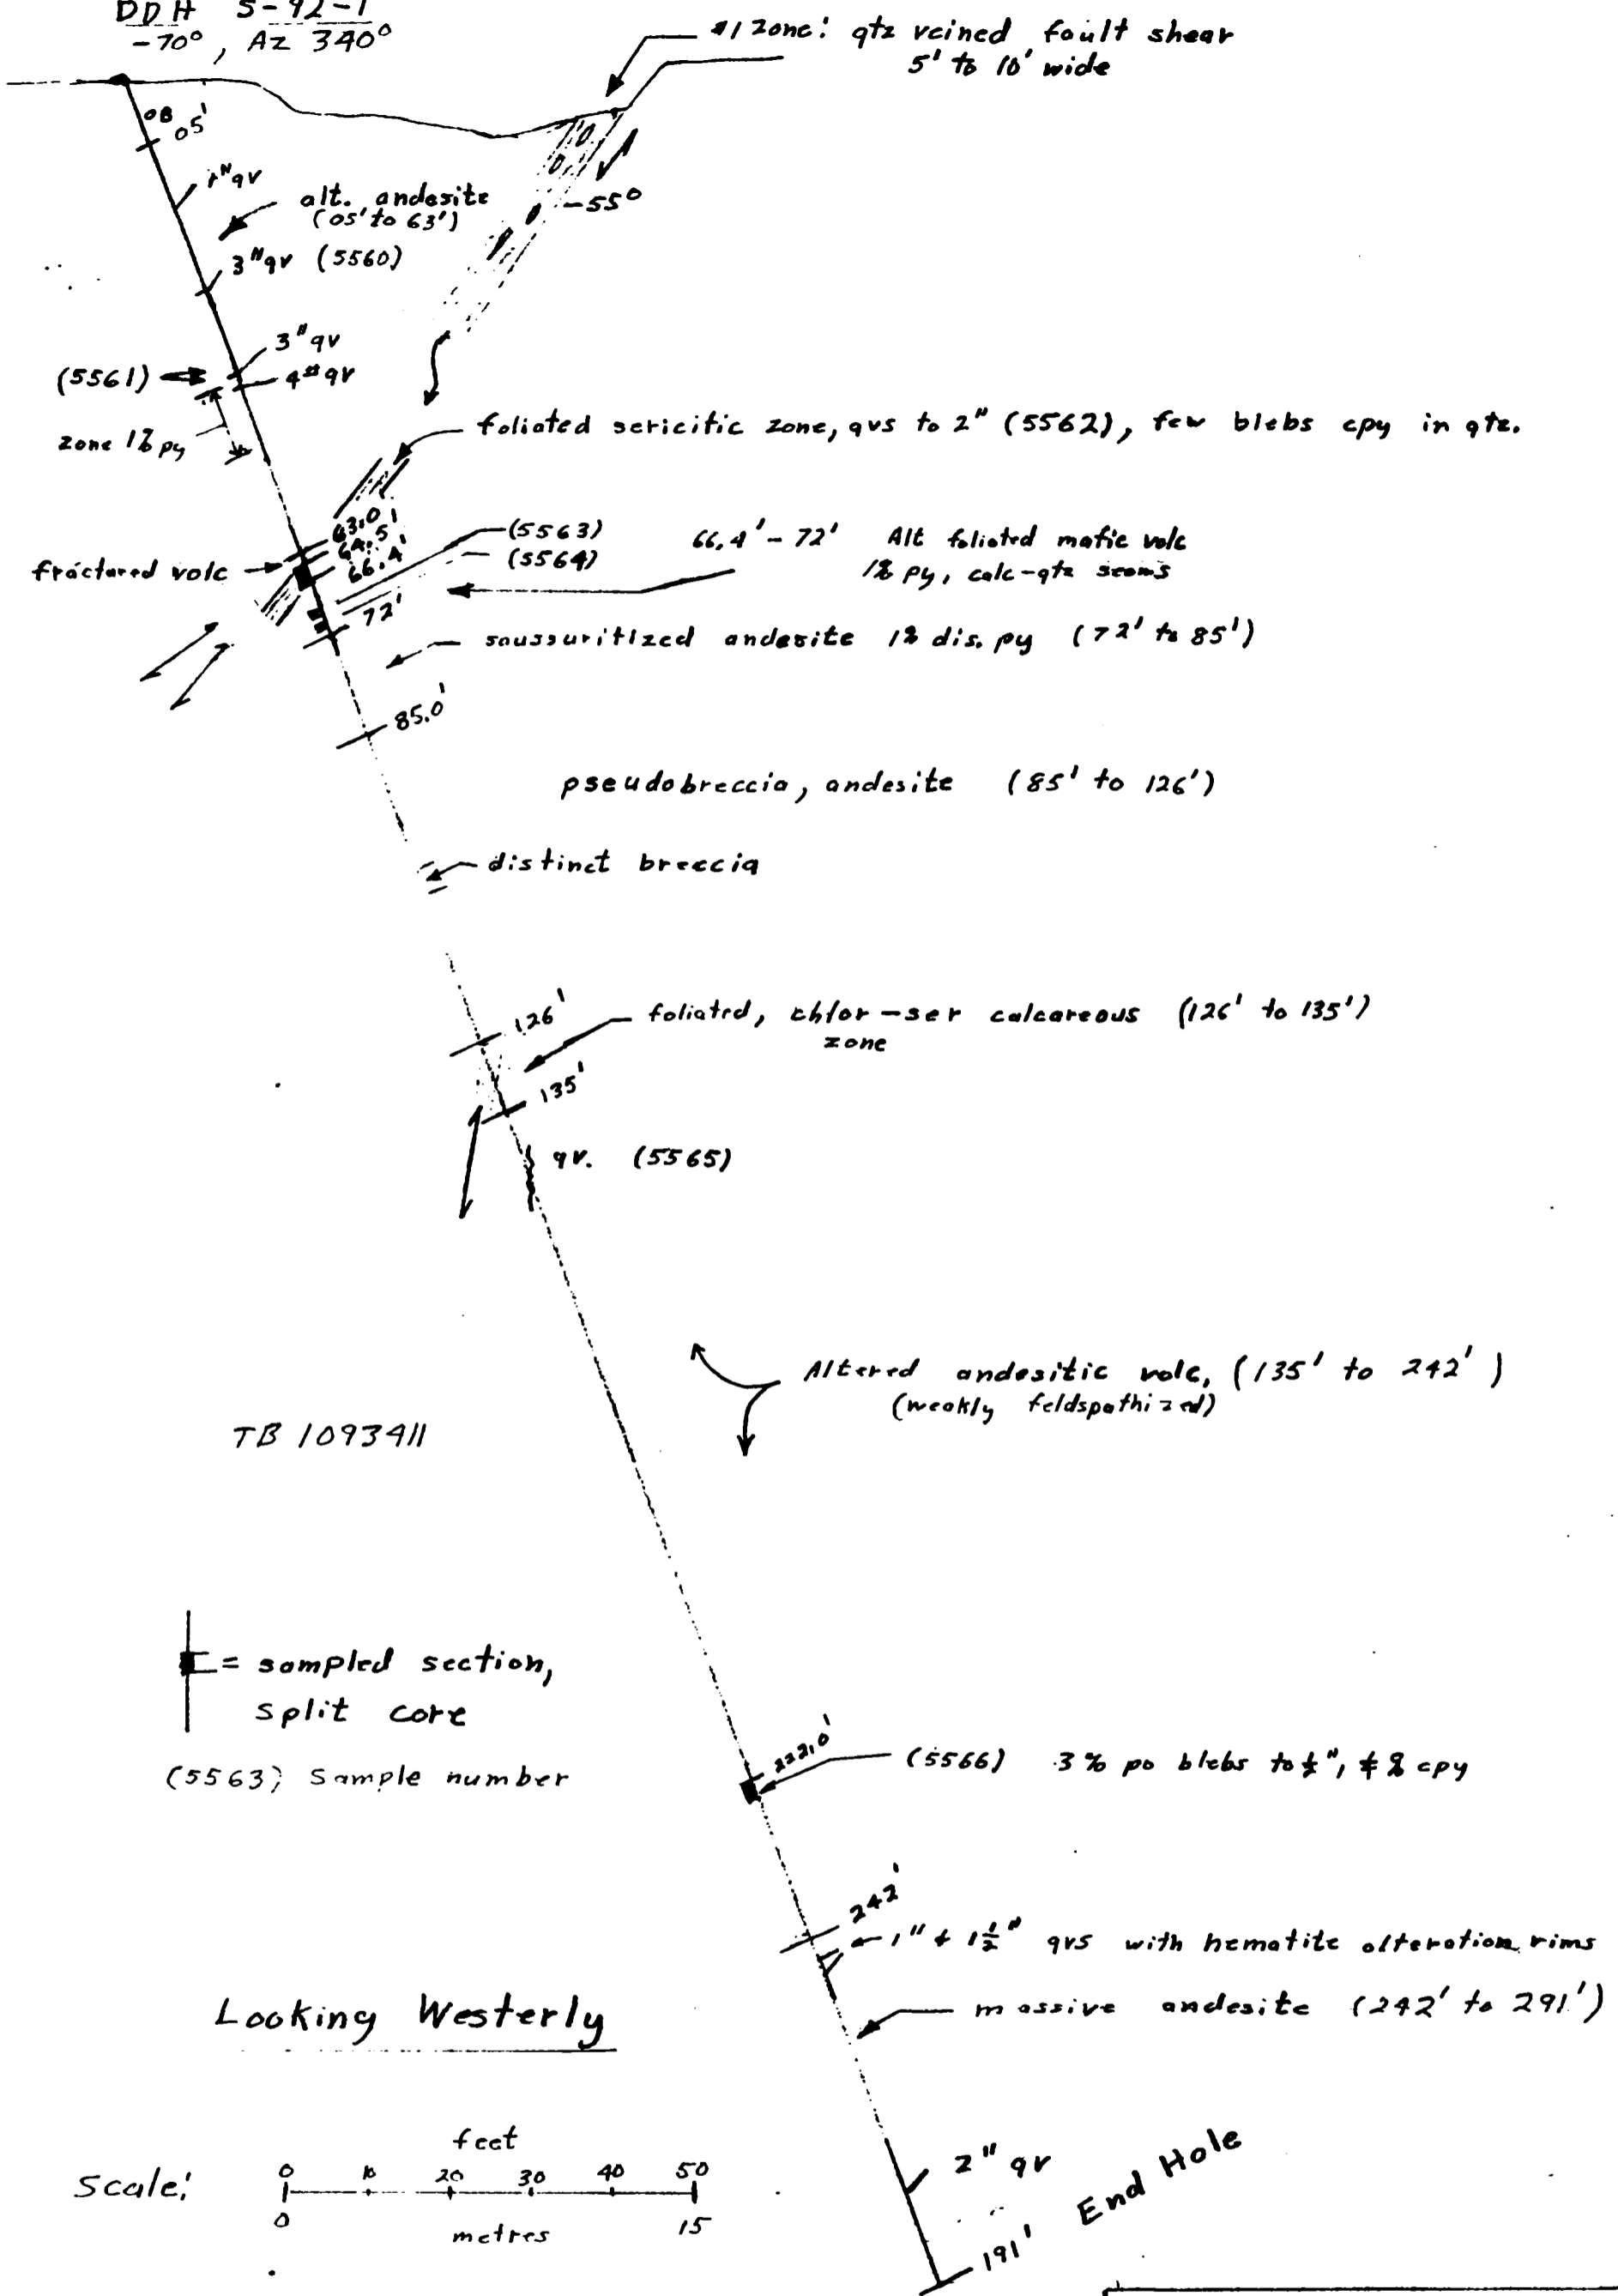 DDH S-92-1
-70°, AZ 340°
#1 zone: qtz veined fault shear
5' to 10' wide
OB
05'
1" qv
alt. andesite
(05' to 63')
-55°
3" qv (5560)
3" qv
(5561)
4" qv
zone 1% py
foliated sericitic zone, qvs to 2" (5562), few blebs cpy in qtz.
63.0'
64.5'
66.4'
fractured volc
(5563)
(5564)
66.4' - 72' Alt foliated mafic volc
1% py, calc-qtz seams
72'
saussuritized andesite 1% dis. py (72' to 85')
85.0'
pseudobreccia, andesite (85' to 126')
distinct breccia
126'
foliated, chlor-ser calcareous (126' to 135')
zone
135'
qv. (5565)
Altered andesitic volc, (135' to 242')
(weakly feldspathized)
TB 1093411
= sampled section,
split core
(5563) Sample number
222.0'
(5566) 3% po blebs to
cpy
242'
1" + 1½" qvs with hematite alteration rims
massive andesite (242' to 291')
Looking Westerly
feet
Scale:
0 10 20 30 40 50
0 15
metres
2" qv
191' End Hole